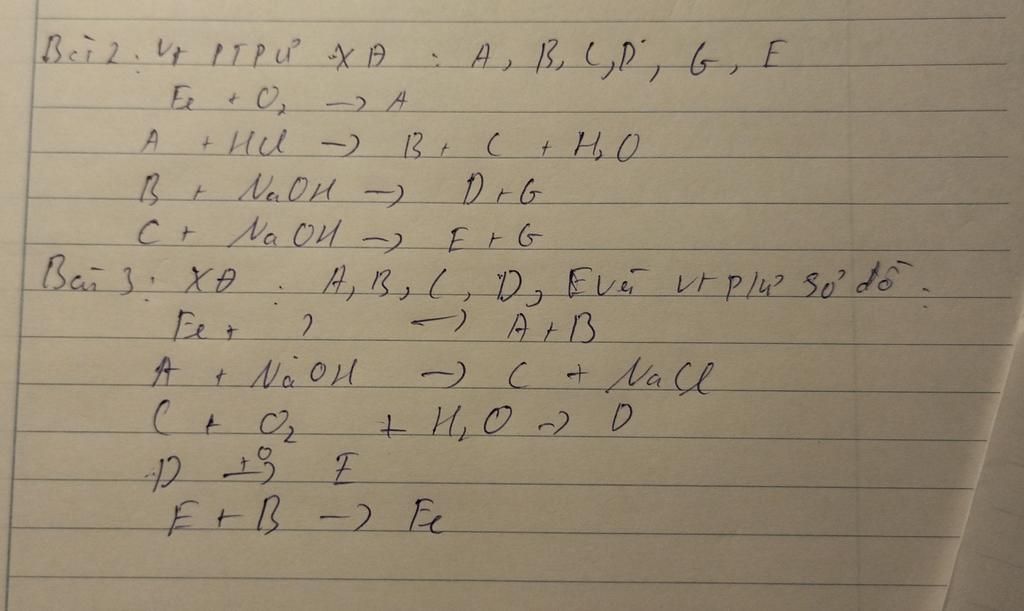 Bài 2: Vt PTPứ XĐ : A, B, C, D, G, E
Fe + O₂ → A
A + HCl → B + C + H₂O
B + NaOH → D + G
C + NaOH → E + G
Bài 3: XĐ : A, B, C, D, E và vt p/ứ sơ đồ :
Fe + ? → A + B
A + NaOH → C + NaCl
C + O₂ + H₂O → D
D t⁰→ E
E + B → Fe